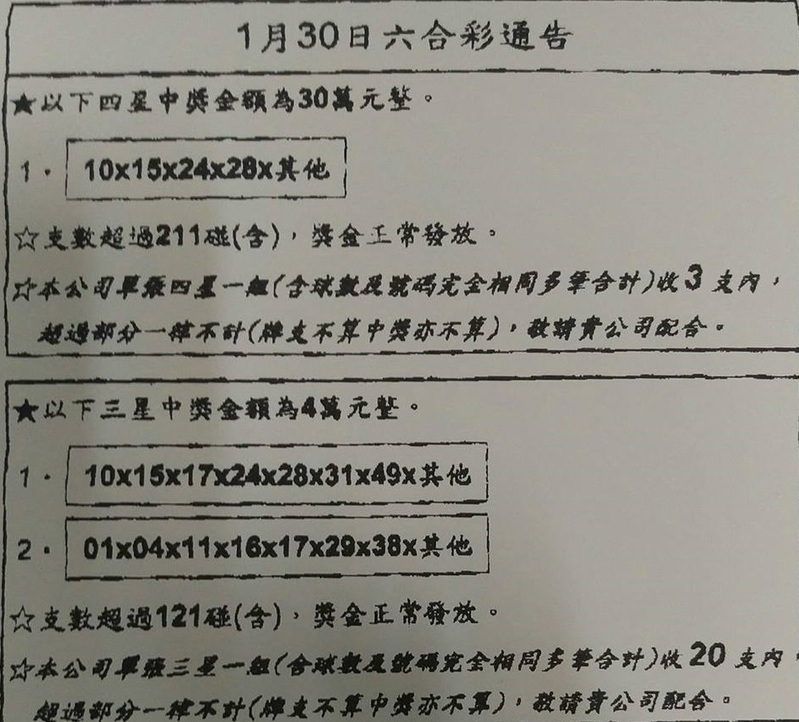 1月30日六合彩通告
★以下四星中獎金額為30萬元整。
1. 10x15x24x28x其他
☆支數超過211碰(含)，獎金正常發放。
☆本公司單張四星一組(含球數及號碼完全相同多筆合計)收3 支內，
超過部分一律不計(牌支不算中獎亦不算)，敬請貴公司配合。
★以下三星中獎金額為4萬元整。
1. 10x15x17x24x28x31x49x其他
2. 01x04x11x16x17x29x38x其他
☆支數超過121碰(含)，獎金正常發放。
☆本公司單張三星一組(含球數及號碼完全相同多筆合計)收 20 支內，
超過部分一律不計(牌支不算中獎亦不算)，敬請貴公司配合。